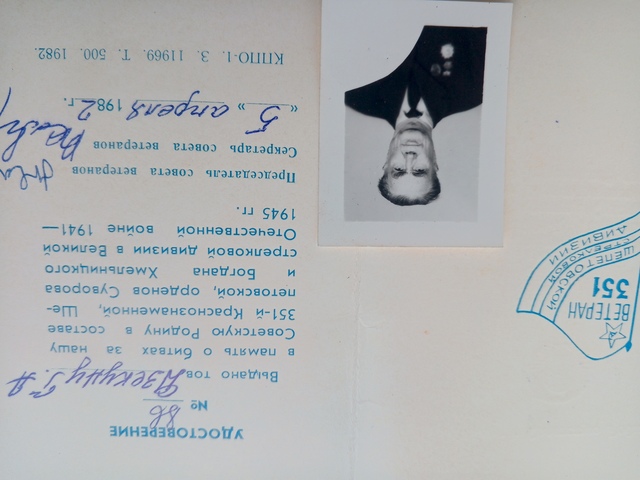 УДОСТОВЕРЕНИЕ
№ 86
Выдано тов.
в память о битвах за нашу
Советскую Родину в составе
351-й Краснознаменной, Ше-
петовской, орденов Суворова
и Богдана Хмельницкого
стрелковой дивизии в Великой
Отечественной войне 1941—
1945 гг.
Председатель совета ветеранов
Секретарь совета ветеранов
« 5 » апреля 1982 г.
КППО-1. З. 11969. Т. 500. 1982.
ВЕТЕРАН
351
ШЕПЕТОВСКОЙ
СТРЕЛКОВОЙ
ДИВИЗИИ